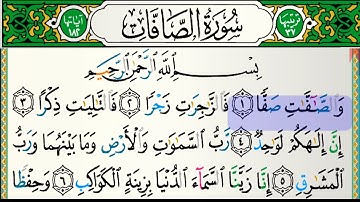 ترتيبها ٣٧ سُورَةُ الصَّافَّاتِ آياتها ١٨٢
بِسْمِ ٱللَّهِ ٱلرَّحْمَٰنِ ٱلرَّحِيمِ
وَٱلصَّٰٓفَّٰتِ صَفًّا ١ فَٱلزَّٰجِرَٰتِ زَجْرًا ٢ فَٱلتَّٰلِيَٰتِ ذِكْرًا ٣
إِنَّ إِلَٰهَكُمْ لَوَٰحِدٌ ٤ رَّبُّ ٱلسَّمَٰوَٰتِ وَٱلْأَرْضِ وَمَا بَيْنَهُمَا وَرَبُّ
ٱلْمَشَٰرِقِ ٥ إِنَّا زَيَّنَّا ٱلسَّمَآءَ ٱلدُّنْيَا بِزِينَةٍ ٱلْكَوَاكِبِ ٦ وَحِفْظًا